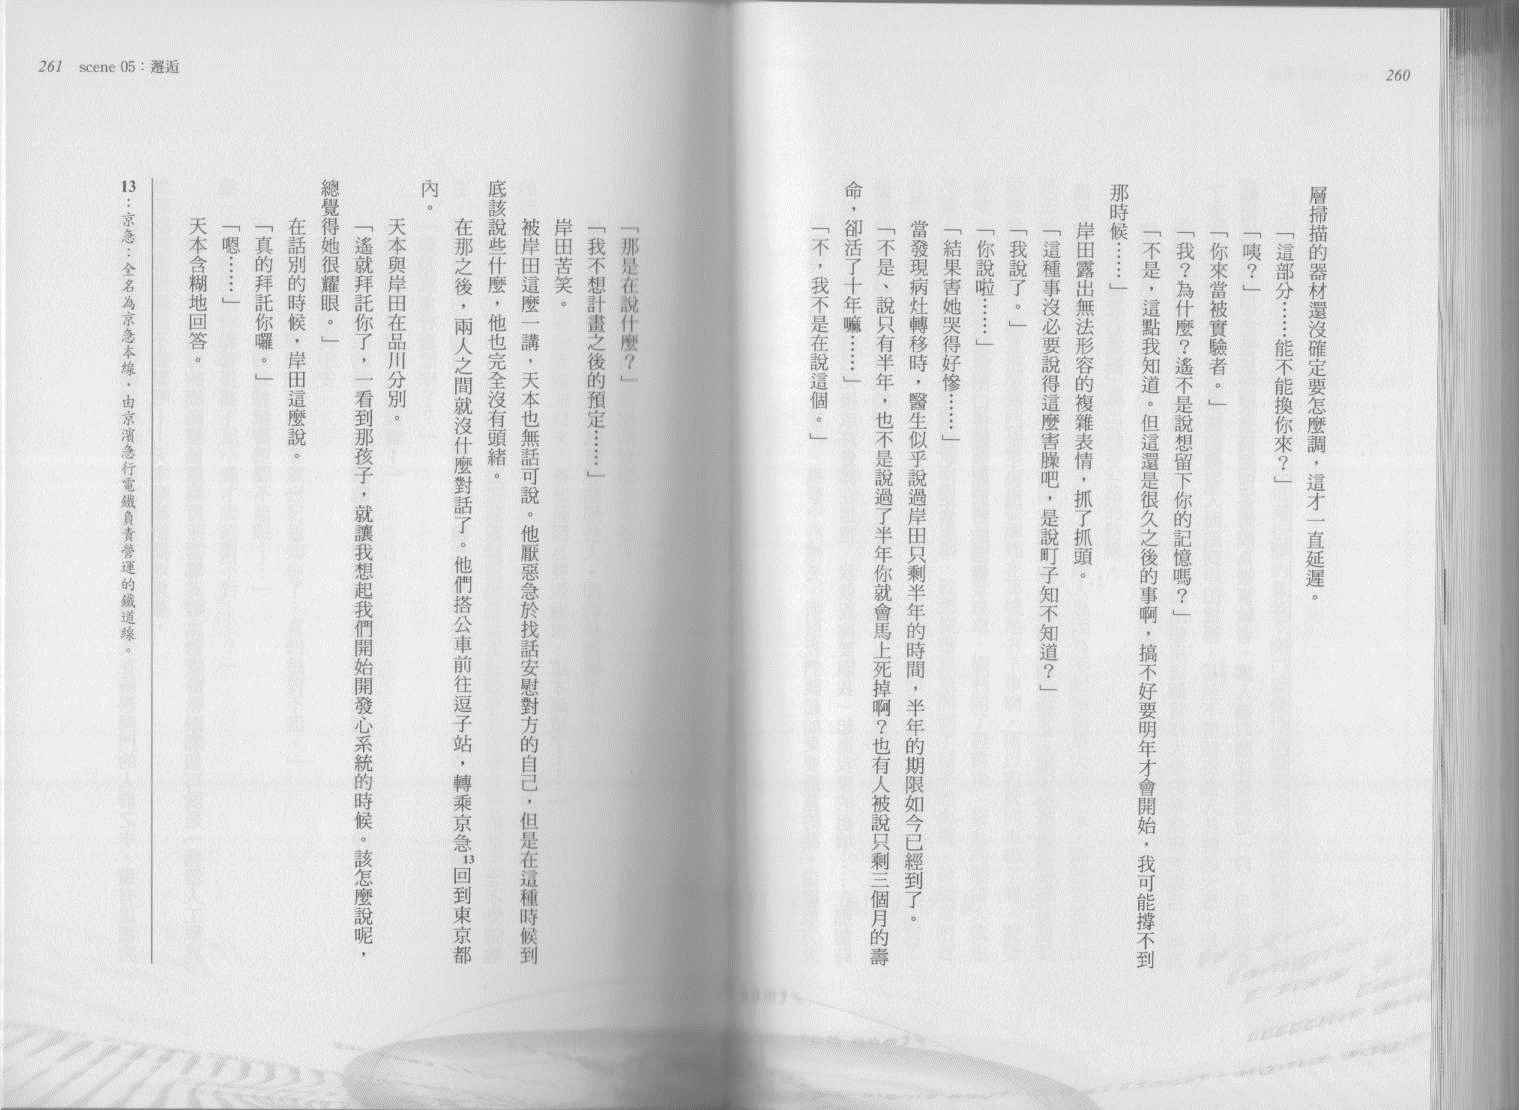 260
層掃描的器材還沒確定要怎麼調，這才一直延遲。
「這部分……能不能換你來？」
「咦？」
「你來當被實驗者。」
「我？為什麼？遙不是說想留下你的記憶嗎？」
「不是，這點我知道。但這還是很久之後的事啊，搞不好要明年才會開始，我可能撐不到
那時候……」
岸田露出無法形容的複雜表情，抓了抓頭。
「這種事沒必要說得這麼害臊吧，是說町子知不知道？」
「我說了。」
「你說啦……」
「結果害她哭得好慘……」
當發現病灶轉移時，醫生似乎說過岸田只剩半年的時間，半年的期限如今已經到了。
「不是、說只有半年，也不是說過了半年你就會馬上死掉啊？也有人被說只剩三個月的壽
命，卻活了十年嘛……」
「不，我不是在說這個。」
261 scene 05：邂逅
「那是在說什麼？」
「我不想計畫之後的預定……」
岸田苦笑。
被岸田這麼一講，天本也無話可說。他厭惡急於找話安慰對方的自己，但是在這種時候到
底該說些什麼，他也完全沒有頭緒。
在那之後，兩人之間就沒什麼對話了。他們搭公車前往逗子站，轉乘京急13回到東京都
內。
天本與岸田在品川分別。
「遙就拜託你了，一看到那孩子，就讓我想起我們開始開發心系統的時候。該怎麼說呢，
總覺得她很耀眼。」
在話別的時候，岸田這麼說。
「真的拜託你囉。」
「嗯……」
天本含糊地回答。
13：京急：全名為京急本線，由京濱急行電鐵負責營運的鐵道線。